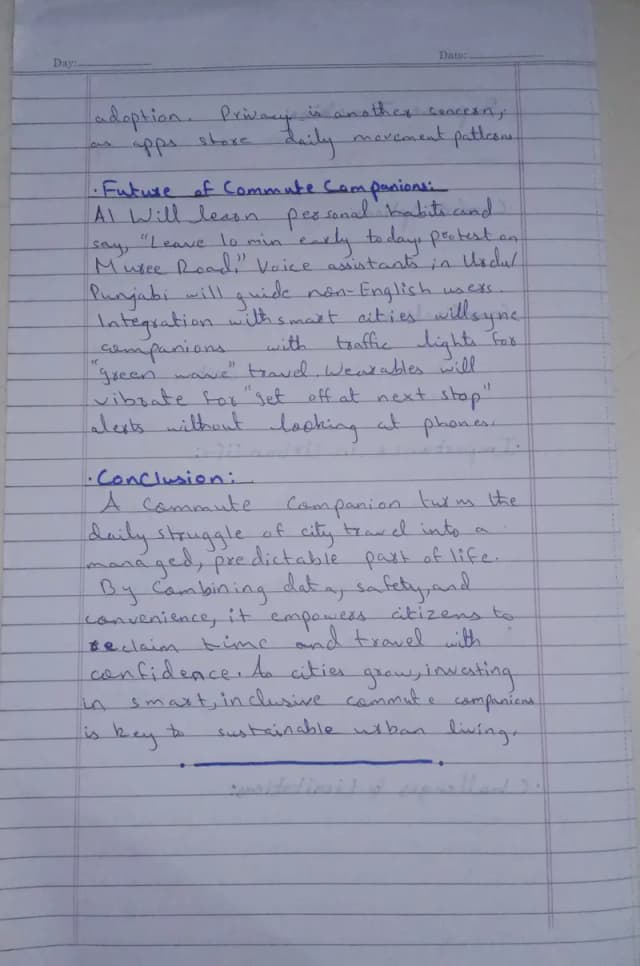 Day:
Date:
adoption. Privacy is another concern,
as apps store daily movement patterns
· Future of Commute Companions:
AI Will learn personal habits and
say, "Leave 10 min early today, protest on
Murree Road." Voice assistants in Urdu/
Punjabi will guide non-English users.
Integration with smart cities will sync
companions with traffic lights for
"green wave" travel. Wearables will
vibrate for "get off at next stop"
alerts without looking at phones.
· Conclusion:
A Commute Companion turns the
daily struggle of city travel into a
managed, predictable part of life.
By Combining data, safety, and
convenience, it empowers citizens to
reclaim time and travel with
confidence. As cities grow, investing
in smart, inclusive commute companions
is key to sustainable urban living.